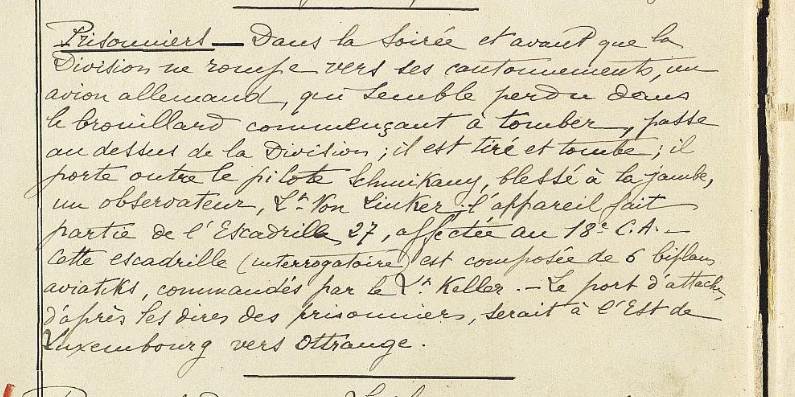 Prisonniers — Dans la Soirée et avant que la
Division ne rompe vers ses cantonnements, un
avion allemand, qui semble perdu dans
le brouillard commençant à tomber, passe
au dessus de la Division ; il est tiré et tombe ; il
porte outre le pilote Schmikany, blessé à la jambe,
un observateur, Lt Von Linker ; l'appareil fait
partie de l'Escadrille 27, affectée au 18e C.A. —
Cette escadrille (interrogatoire) est composée de 6 biplans
aviatiks, commandés par le Lt Keller. — Le port d'attache,
d'après les dires des prisonniers, serait à l'Est de
Luxembourg vers Ottrange.